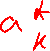 a k
k